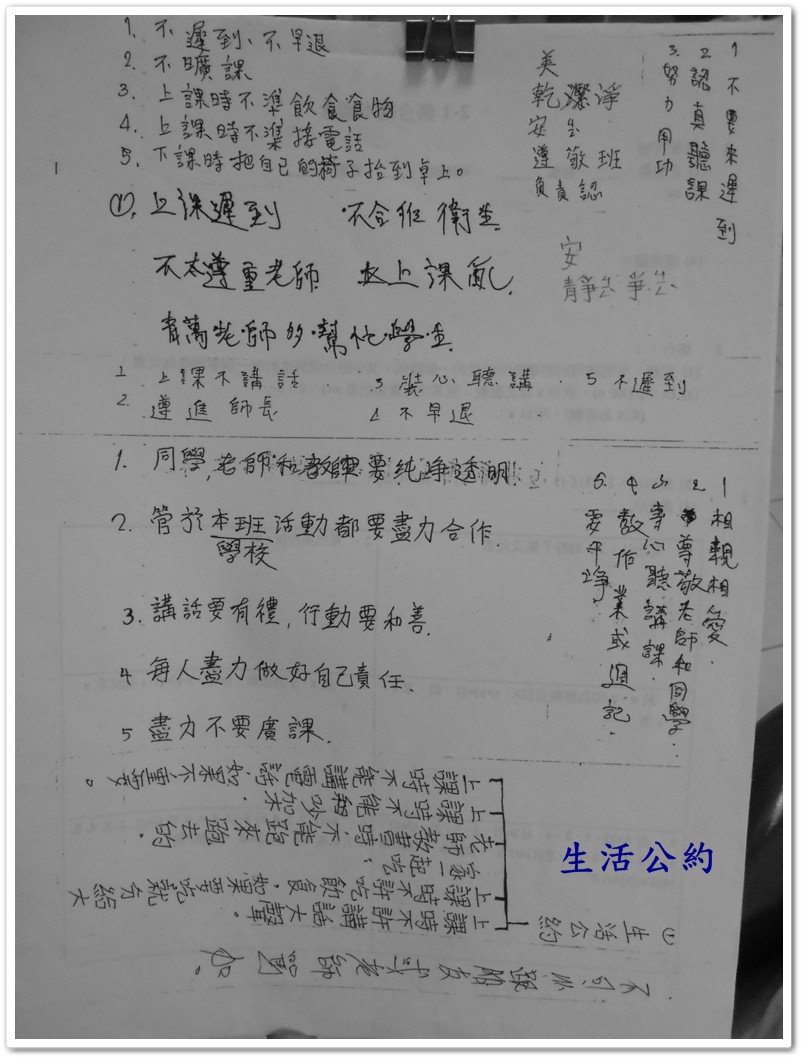 1. 不遲到、不早退
2. 不曠課
3. 上課時不準飲食食物
4. 上課時不準接電話
5. 下課時把自己的椅子抬到卓上。
①. 上課遲到 不合班衛生
不太尊重老師 上課亂.
老師多幫忙學生
1 上課不講話 3 聽講 5 不遲到
2. 遵進師長 4 不早退
美
乾潔淨
安
遵敬班
負責認
安
靜
1 不要來遲到
2 認真聽課
3. 努力用功
1. 同學,老師和教師要純淨透
2. 管於本班活動都要盡力合作.
學校
3. 講話要有禮,行動要和善.
4 每人盡力做好自己責任.
5 盡力不要廣課.
1 相親相愛.
2 尊敬老師和同學.
3 專心聽講課.
4 作業或週記.
5. 要
① 生活公約
上課時不許講話大聲。
上課時不許飲食.如果要吃就有給大
家一起吃.
老師教書時不能跑來跑去的.
上課時不能吵架.
上課時不能講電話.如果不重要。
生活公約